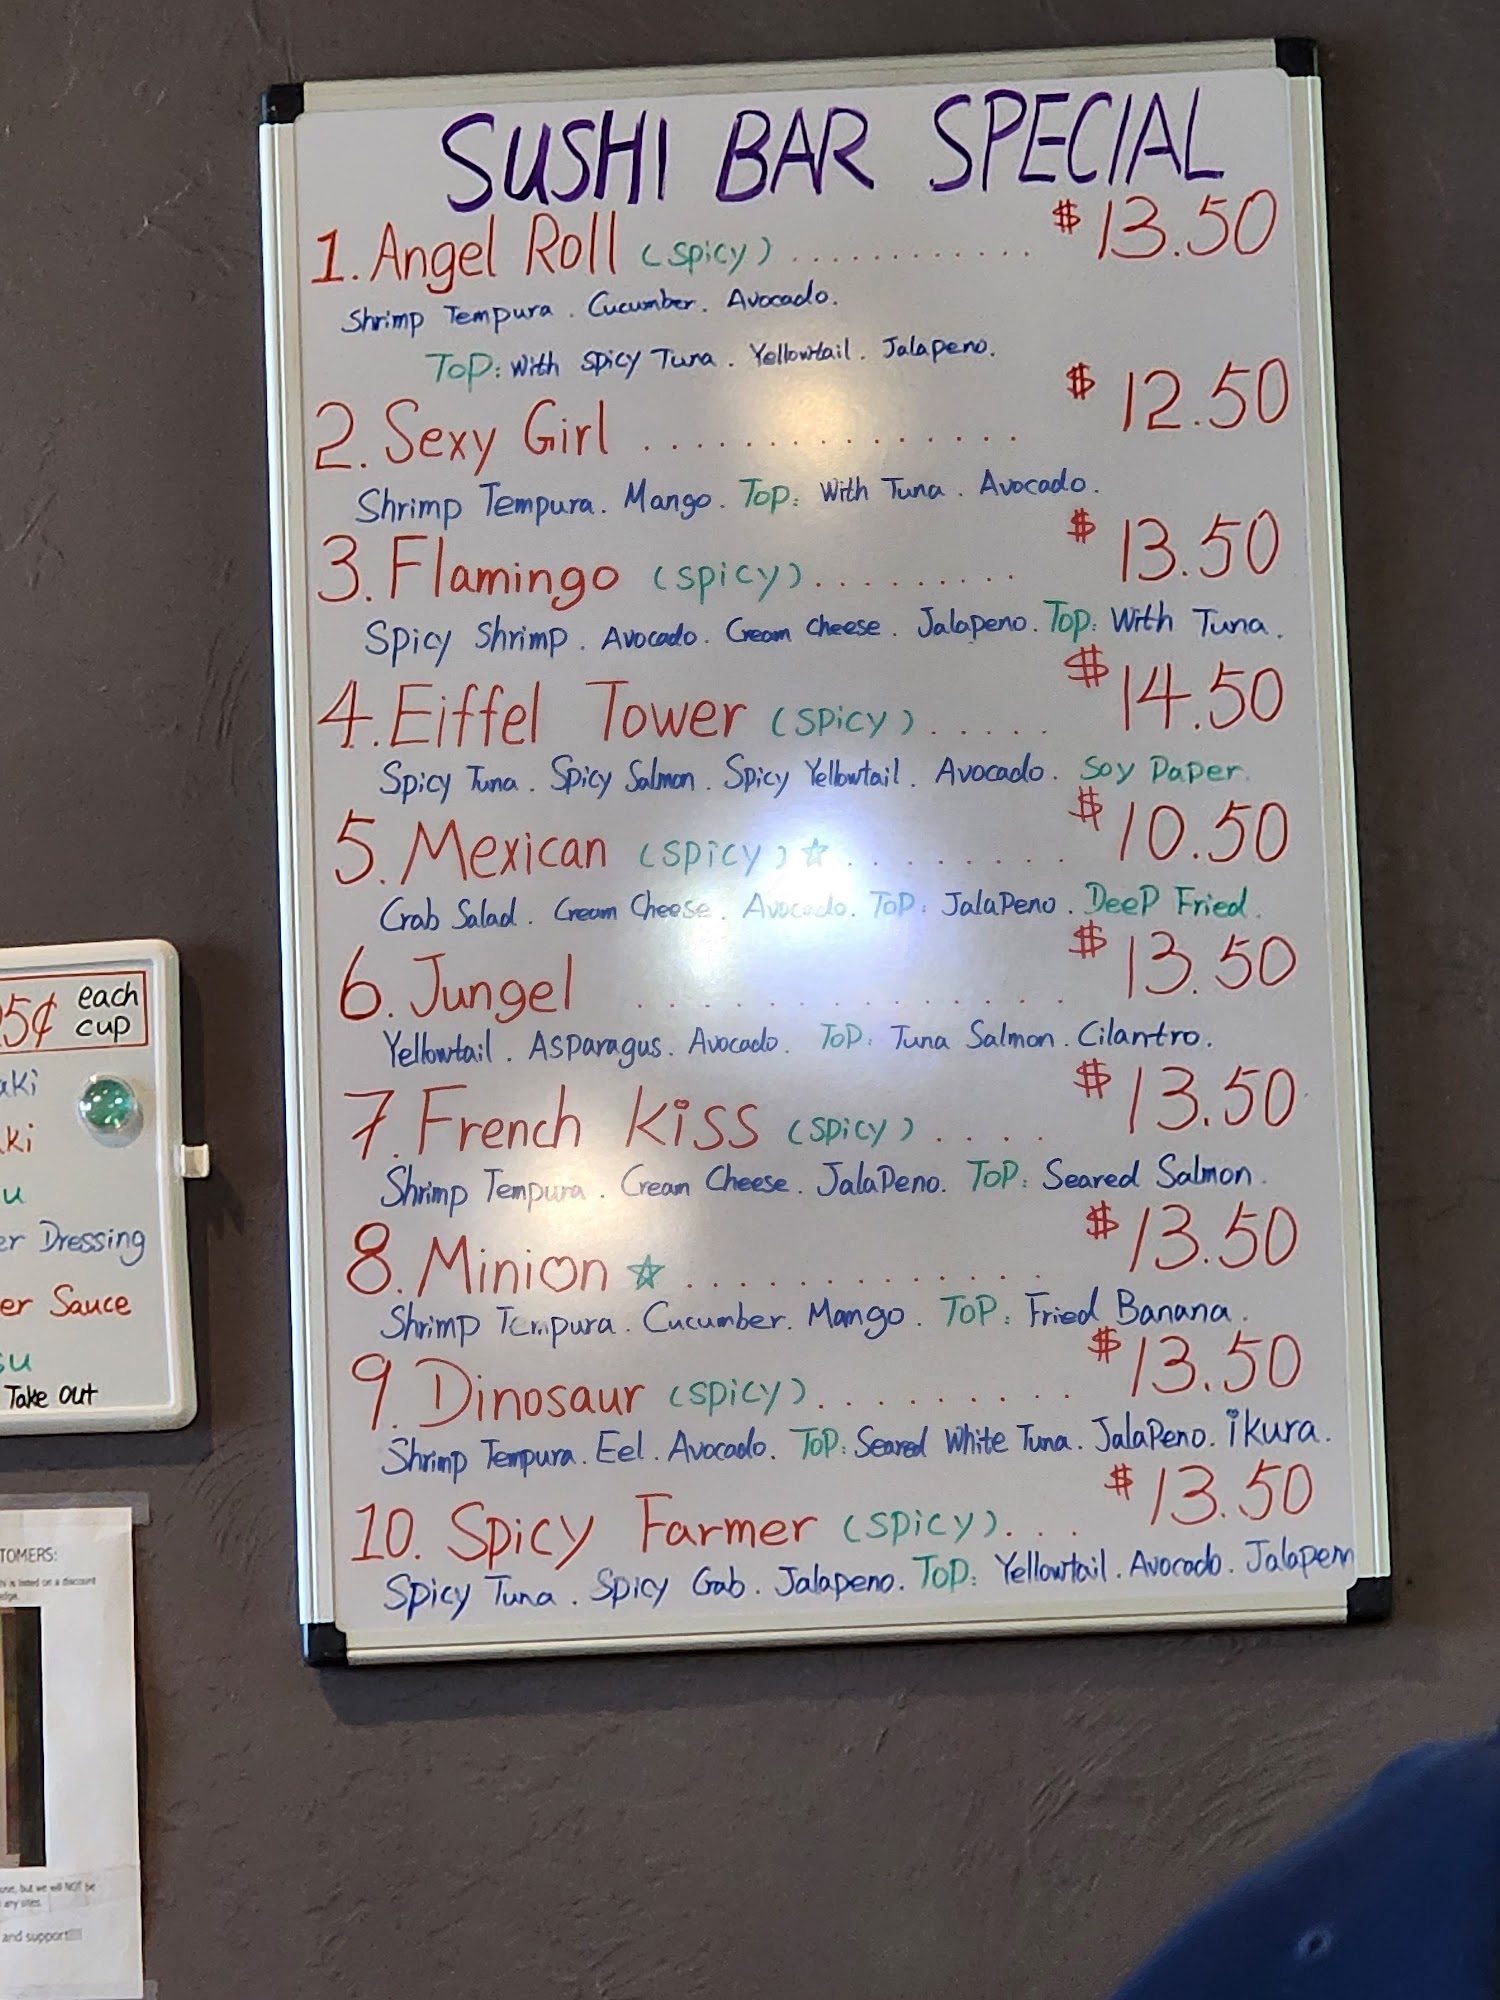 SUSHI BAR SPECIAL
1. Angel Roll (spicy) ............ $13.50
Shrimp Tempura. Cucumber. Avocado.
TOP: With Spicy Tuna. Yellowtail. Jalapeno.
2. Sexy Girl ............... $12.50
Shrimp Tempura. Mango. TOP: With Tuna. Avocado.
3. Flamingo (spicy) ......... $13.50
Spicy Shrimp. Avocado. Cream Cheese. Jalapeno. Top: With Tuna.
4. Eiffel Tower (spicy) ..... $14.50
Spicy Tuna. Spicy Salmon. Spicy Yellowtail. Avocado. Soy Paper.
5. Mexican (spicy) ☆ ......... $10.50
Crab Salad. Cream Cheese. Avocado. TOP: Jalapeno. Deep Fried.
6. Jungel ................ $13.50
Yellowtail. Asparagus. Avocado. TOP: Tuna Salmon. Cilantro.
7. French Kiss (spicy) .... $13.50
Shrimp Tempura. Cream Cheese. Jalapeno. TOP: Seared Salmon.
8. Minion ☆ ............. $13.50
Shrimp Tempura. Cucumber. Mango. TOP: Fried Banana.
9. Dinosaur (spicy) ......... $13.50
Shrimp Tempura. Eel. Avocado. TOP: Seared White Tuna. Jalapeno. ikura.
10. Spicy Farmer (spicy) ... $13.50
Spicy Tuna. Spicy Crab. Jalapeno. TOP: Yellowtail. Avocado. Jalapen
5¢ each cup
aki
ki
u
er Dressing
er Sauce
su
Take Out
TOMERS:
is listed on a discount
but we will NOT be
any sites.
and support!!!!